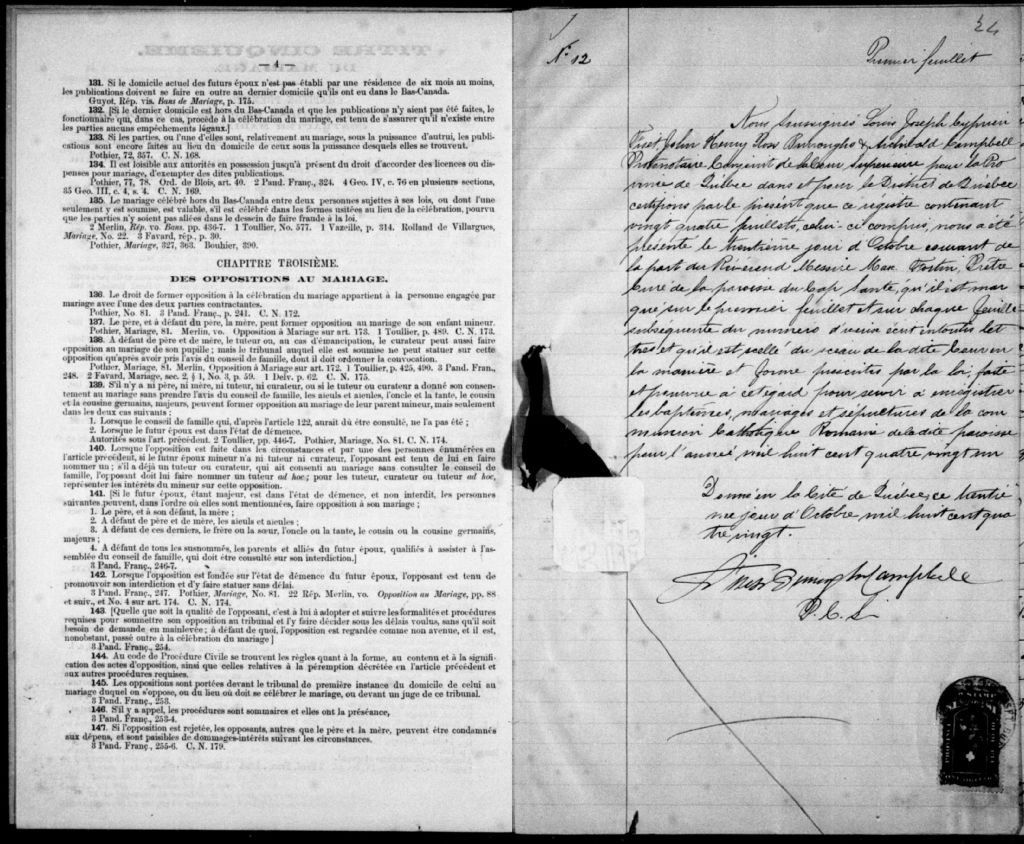 — 4 —
131. Si le domicile actuel des futurs époux n'est pas établi par une résidence de six mois au moins,
les publications doivent se faire en outre au dernier domicile qu'ils ont eu dans le Bas-Canada.
Guyot, Rép. vis. Bans de Mariage, p. 175.
132. [Si le dernier domicile est hors du Bas-Canada et que les publications n'y aient pas été faites, le
fonctionnaire qui, dans ce cas, procède à la célébration du mariage, est tenu de s'assurer qu'il n'existe entre
les parties aucuns empêchements légaux.]
133. Si les parties, ou l'une d'elles sont, relativement au mariage, sous la puissance d'autrui, les publi-
cations sont encore faites au lieu du domicile de ceux sous la puissance desquels elles se trouvent.
Pothier, 72, 357. C. N. 168.
134. Il est loisible aux autorités en possession jusqu'à présent du droit d'accorder des licences ou dis-
penses pour mariage, d'exempter des dites publications.
Pothier, 77, 78. Ord. de Blois, art. 40. 2 Pand. Franç., 324. 4 Geo. IV, c. 76 en plusieurs sections,
35 Geo. III, c. 4, s. 4. C. N. 169.
135. Le mariage célébré hors du Bas-Canada entre deux personnes sujettes à ses lois, ou dont l'une
seulement y est soumise, est valable, s'il est célébré dans les formes usitées au lieu de la célébration, pourvu
que les parties n'y soient pas allées dans le dessein de faire fraude à la loi.
2 Merlin, Rép. vo. Bans, pp. 436-7. 1 Toullier, No. 577. 1 Vazeille, p. 314. Rolland de Villargues,
Mariage, No. 22. 3 Favard, rép., p. 30.
Pothier, Mariage, 327, 363. Bouhier, 390.
CHAPITRE TROISIÈME.
DES OPPOSITIONS AU MARIAGE.
136. Le droit de former opposition à la célébration du mariage appartient à la personne engagée par
mariage avec l'une des deux parties contractantes.
Pothier, No. 81. 3 Pand. Franç., p. 241. C. N. 172.
137. Le père, et à défaut du père, la mère, peut former opposition au mariage de son enfant mineur.
Pothier, Mariage, 81. Merlin, vo. Opposition à Mariage sur art. 173. 1 Toullier, p. 489. C. N. 173.
138. A défaut de père et de mère, le tuteur ou, au cas d'émancipation, le curateur peut aussi faire
opposition au mariage de son pupille; mais le tribunal auquel elle est soumise ne peut statuer sur cette
opposition qu'après avoir pris l'avis du conseil de famille, dont il doit ordonner la convocation.
Pothier, Mariage, 81. Merlin, Opposition à Mariage sur art. 172. 1 Toullier, p. 425, 490. 3 Pand. Fran.,
248. 2 Favard, Mariage, sec. 2, § 1, No. 3, p. 59. 1 Delv. p. 62. C. N. 175.
139. S'il n'y a ni père, ni mère, ni tuteur, ni curateur, ou si le tuteur ou curateur a donné son consen-
tement au mariage sans prendre l'avis du conseil de famille, les aïeuls et aïeules, l'oncle et la tante, le cousin
et la cousine germains, majeurs, peuvent former opposition au mariage de leur parent mineur, mais seulement
dans les deux cas suivants :
1. Lorsque le conseil de famille qui, d'après l'article 122, aurait dû être consulté, ne l'a pas été ;
2. Lorsque le futur époux est dans l'état de démence.
Autorités sous l'art. précédent. 2 Toullier, pp. 446-7. Pothier, Mariage, No. 81. C. N. 174.
140. Lorsque l'opposition est faite dans les circonstances et par une des personnes énumérées en
l'article précédent, si le futur époux mineur n'a ni tuteur ni curateur, l'opposant est tenu de lui en faire
nommer un ; s'il a déjà un tuteur ou curateur, qui ait consenti au mariage sans consulter le conseil de
famille, l'opposant doit lui faire nommer un tuteur ad hoc; pour les tuteur, curateur ou tuteur ad hoc,
représenter les intérêts du mineur sur cette opposition.
141. [Si le futur époux, étant majeur, est dans l'état de démence, et non interdit, les personnes
suivantes peuvent, dans l'ordre où elles sont mentionnées, faire opposition à son mariage ;
1. Le père, et à son défaut, la mère ;
2. A défaut de père et de mère, les aïeuls et aïeules ;
3. A défaut de ces derniers, le frère ou la sœur, l'oncle ou la tante, le cousin ou la cousine germains,
majeurs ;
4. A défaut de tous les susnommés, les parents et alliés du futur époux, qualifiés à assister à l'as-
semblée du conseil de famille, qui doit être consulté sur son interdiction.]
3 Pand. Franç., 246-7.
142. Lorsque l'opposition est fondée sur l'état de démence du futur époux, l'opposant est tenu de
promouvoir son interdiction et d'y faire statuer sans délai.
3 Pand. Franç., 247. Pothier, Mariage, No. 81. 22 Rép. Merlin, vo. Opposition au Mariage, pp. 88
et suiv., et No. 4 sur art. 174. C. N. 174.
143. [Quelle que soit la qualité de l'opposant, c'est à lui à adopter et suivre les formalités et procédures
requises pour soumettre son opposition au tribunal et l'y faire décider sous les délais voulus, sans qu'il soit
besoin de demande en mainlevée ; à défaut de quoi, l'opposition est regardée comme non avenue, et il est,
nonobstant, passé outre à la célébration du mariage]
3 Pand. Franç., 254.
144. Au code de Procédure Civile se trouvent les règles quant à la forme, au contenu et à la signifi-
cation des actes d'opposition, ainsi que celles relatives à la péremption décrétée en l'article précédent et
aux autres procédures requises.
145. Les oppositions sont portées devant le tribunal de première instance du domicile de celui au
mariage duquel on s'oppose, ou du lieu où doit se célébrer le mariage, ou devant un juge de ce tribunal.
3 Pand. Franç., 253.
146. S'il y a appel, les procédures sont sommaires et elles ont la préséance,
3 Pand. Franç., 253-4.
147. Si l'opposition est rejetée, les opposants, autres que le père et la mère, peuvent être condamnés
aux dépens, et sont paisibles de dommages-intérêts suivant les circonstances.
3 Pand. Franç., 255-6. C. N. 179.
N° 12
Premier feuillet
Nous soussignés Louis Joseph Cyprien
Fiset, John Henry Ross Burroughs & Archibald Campbell
Protonotaire Conjoint de la Cour Supérieure pour la Pro
vince de Québec dans et pour le District de Québec
certifions par le présent que ce registre contenant
vingt quatre feuillets, celui-ci compris, nous a été
présenté le trentième jour d'Octobre courant de
la part du Révérend Messire Max. Fortin, Prêtre
Curé de la paroisse du Cap Santé, qu'il est mar
qué sur le premier feuillet et sur chaque feuille
subséquente du numero d'icelui écrit en toutes let
tres et qu'il est scellé du sceau de la dite Cour en
la manière et forme prescrites par la loi, faite
et pourvue à cet égard pour servir à enregistrer
les baptêmes, mariages et sépultures de la com
munion Catholique Romaine de la dite paroisse
pour l'année mil huit cent quatre vingt un
Donné en la Cité de Québec, ce trentiè
me jour d'Octobre mil huit cent qua
tre vingt.
Fiset Burroughs Campbell
P. C. S.